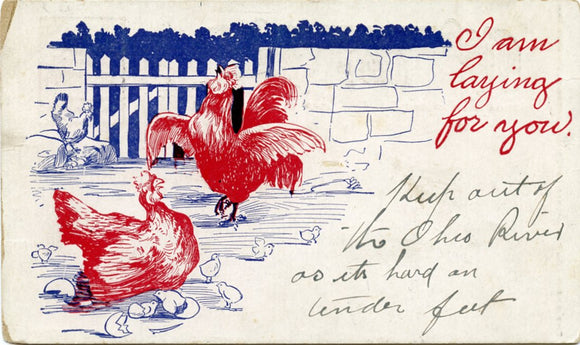 I am
laying
for you.
Keep out of
the Ohio River
as its hard on
under feet